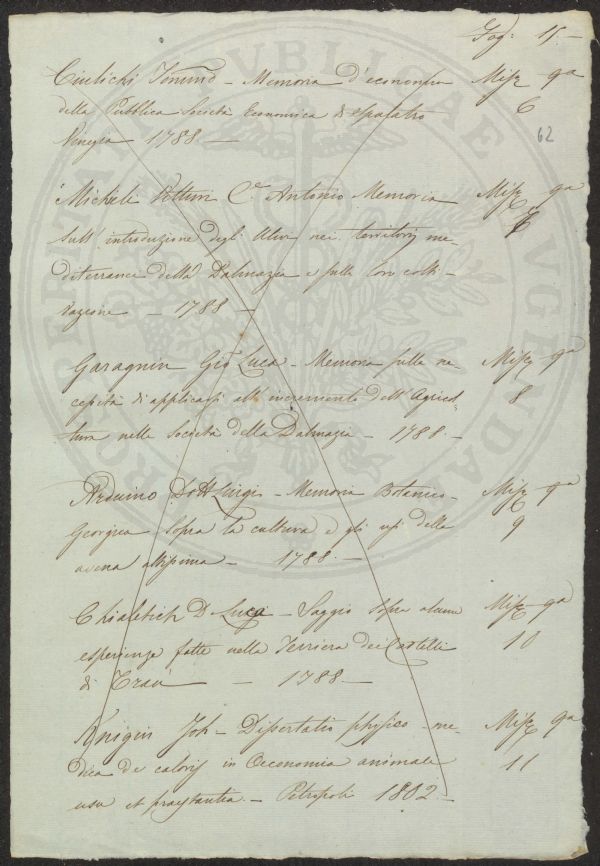 Pag: 15.—
Ciulichi — Memoria d'economia Misc 9a
della Pubblica Società Economica di Spalatro 6
Venezia 1788 —
62
Micheli Vitturi Cte Antonio Memoria Misc 9a
sull' introduzione degli Ulivi nei territorj me- 7
diterranei della Dalmazia e sulla loro colti-
vazione — 1788 —
Garagnin Gio Luca — Memoria sulla ne- Misc 9a
cessità di applicarsi all' incremento dell' Agricol- 8
tura nelle Società della Dalmazia — 1788 —
Arduino Dott Luigi — Memoria Botanico- Misc 9a
Georgica sopra la cultura e gli usi della 9
avena altissima — 1788 —
D Luca — Saggio sopra alcune Misc 9a
esperienze fatte nella Terriera dei Castelli 10
di Traù — 1788 —
Joh — Dissertatio physico-me- Misc 9a
dica de caloris in Oeconomia animale 11
usu et praestantia — Petropoli 1802 —
PUBLICAE
PROSPERITATI
AUGENDAE